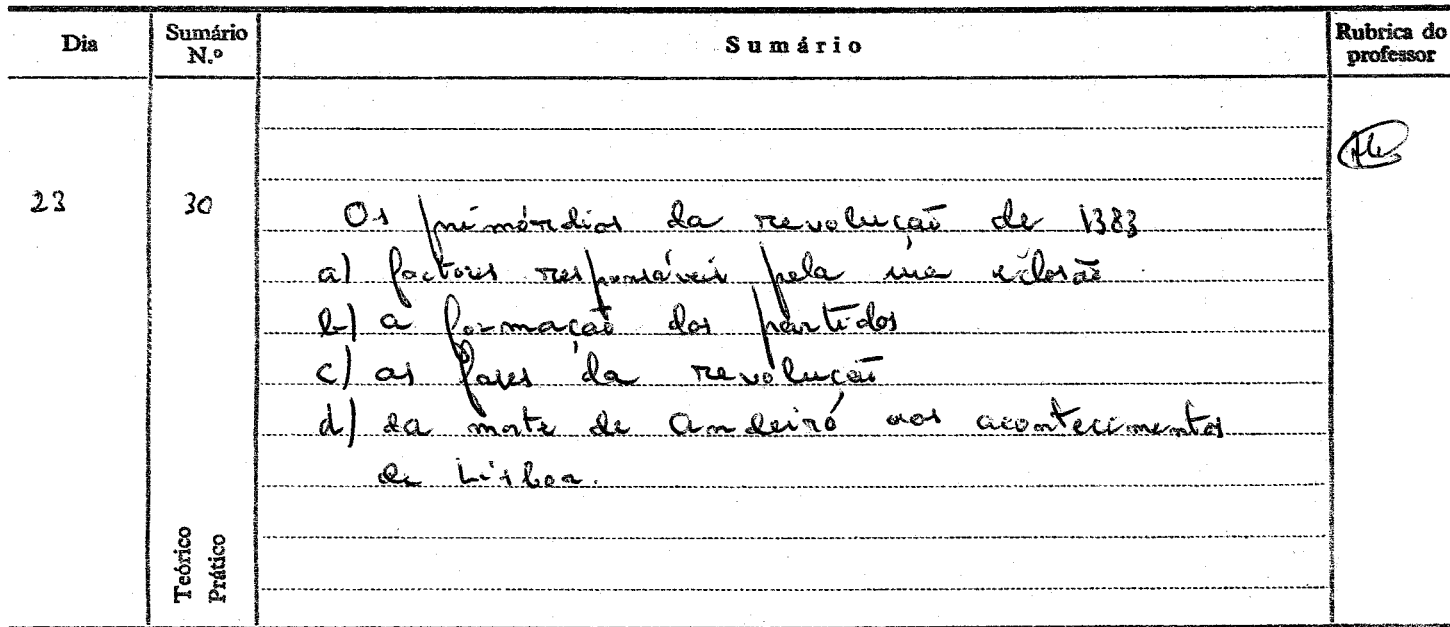 Dia Sumário N.º Sumário Rubrica do professor
23 30 Os primórdios da revolução de 1383
a) factores responsáveis pela sua eclosão
b) a formação dos partidos
c) as fases da revolução
d) da morte de Andeiro aos acontecimentos
de Lisboa.
Teórico
Prático